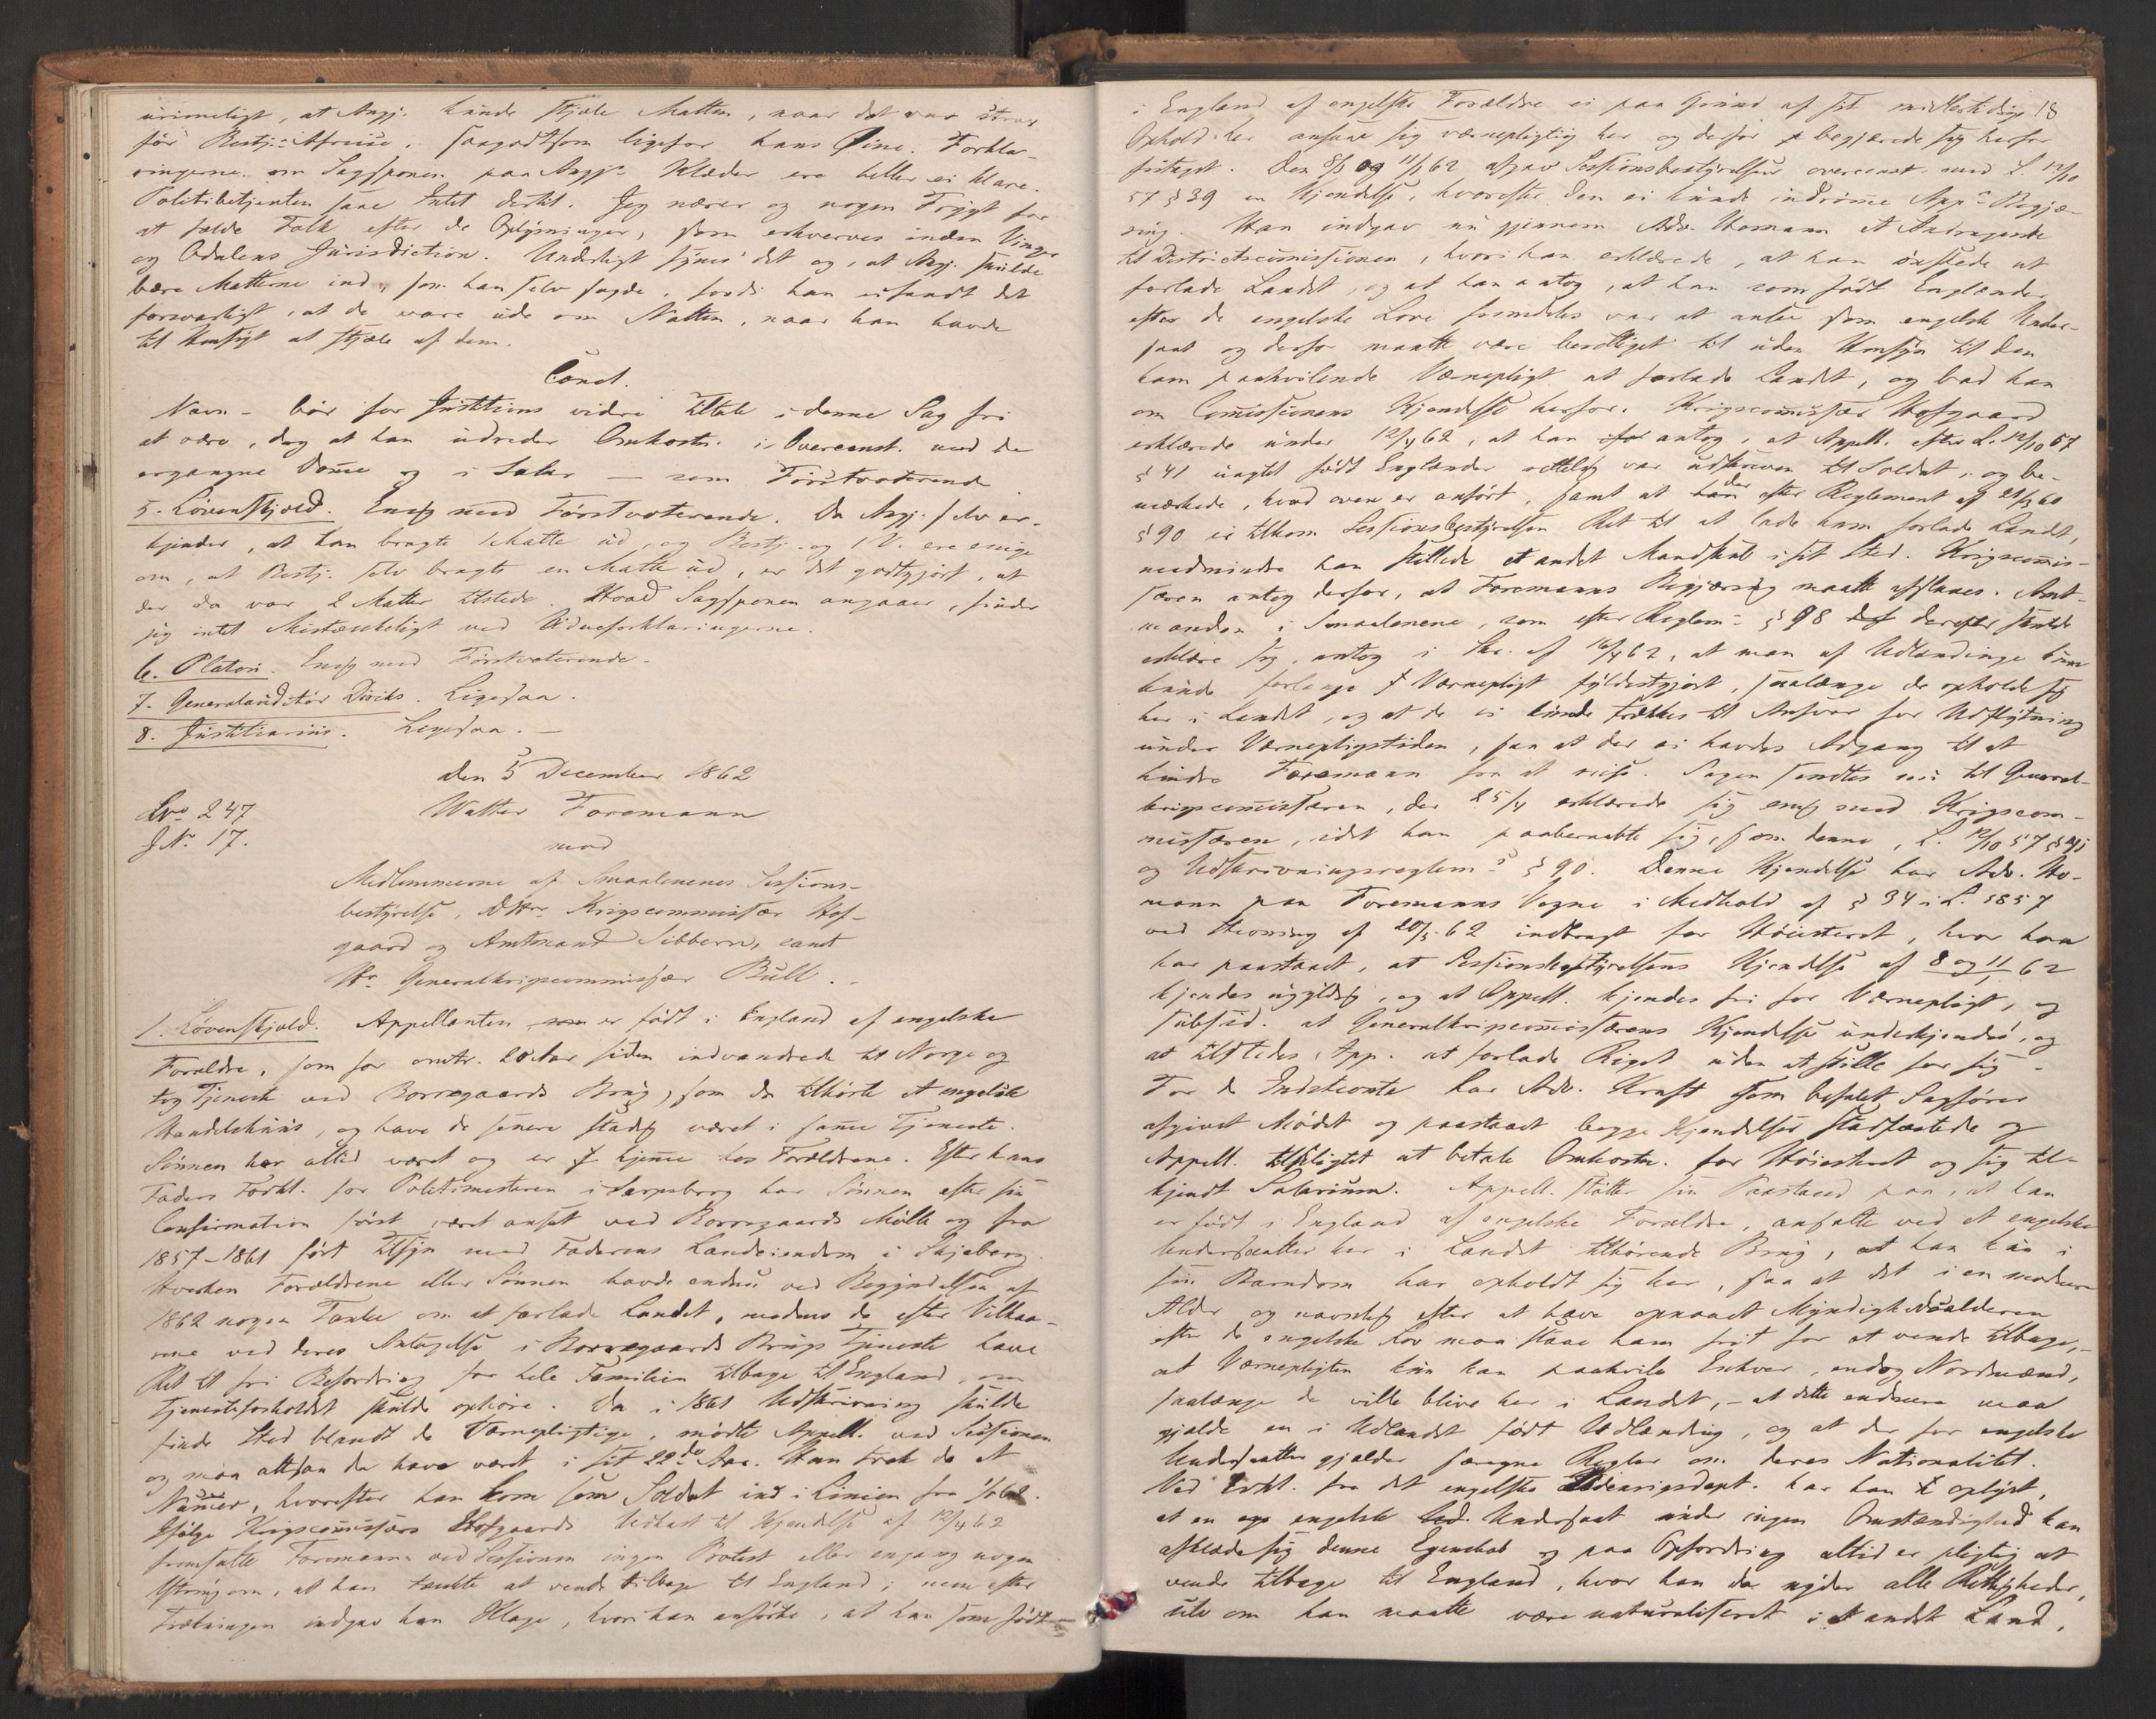 urimeligt, at Angj. kunde stjæle Matten, naar det var strax
før Bestj.s Afreise, saagodtsom ligefor hans Øine. Forkla-
ringerne om Sagsponen paa Angj.s Klæder ere heller ei klare.
Politibetjenten saae Intet dertil. Jeg nærer og nogen Frygt for
at fælde Folk efter de Oplysninger, som erhverves inden Vinger
og Odalens Jurisdiction. Underligt synes det og, at Angj. skulde
bære Matterne ind, som han selv sagde, fordi han ei fandt det
forsvarligt, at de vare ude om Natten, naar han havde
til Hensigt at stjæle af dem.
Concl.
Navn – bør for Justitiens videre Tiltale i denne Sag fri
at være, dog at han udreder Omkostn. i Overeenst. med de
ergangne Domme og i Salær — som Førstvoterende
5. Løvenskjold. Enig med Førstvoterende. Da Angj. selv er-
kjender, at han bragte 1 Matte ud, og Bestj. og 1 V. ere enige
om, at Bestj. selv bragte en Matte ud, er det godtgjort, at
der da var 2 Matter tilstede. Hvad Sagsponen angaaer, finder
jeg intet Mistænkeligt ved Vidneforklaringerne.
6. Platou. Enig med Førstvoterende.
7. Generalauditør Diriks. Ligesaa.
8. Justitiarius. Ligesaa. —
den 5 December 1862
Lvo 247 Walter Foremann
J.N. 17. mod
Medlemmerne af Smaalenenes Sessions-
bestyrelse, DHrr. Krigscommissær Hof-
gaard og Amtmand Sibbern, samt
Hr. Generalkrigscommissær Bull.
1. Løvenskjold. Appellanten som er født i England af engelske
Forældre, som for omtr. 20 Aar siden indvandrede til Norge og
tog Tjeneste ved Borregaards Brug, som da tilhørte et engelsk
Handelshuus, og have de senere stadig været i samme Tjeneste.
Sønnen har altid været og er hjemme hos Forældrene. Efter hans
Faders Forkl. for Politimesteren i Sarpsborg har Sønnen efter sin
Confirmation først været ansat ved Borregaards Mølle og fra
1857–1861 ført Tilsyn med Faderens Landeiendom i Skjeberg.
Hverken Forældrene eller Sønnen havde endnu ved Begyndelsen af
1862 nogen Tanke om at forlade Landet, medens de efter Vilkaa-
rene ved deres Antagelse i Borregaards Brugs Tjeneste have
Ret til fri Befordring for hele Familien tilbage til England, om
Tjenesteforholdet skulde ophøre. Da i 1861 Udskrivning skulde
finde Sted blandt de Værnepligtige, mødte Appell. ved Sessionen
og maa altsaa da have været i sit 22de Aar. Han trak da et
Nummer, hvorefter han kom som Soldat ind i Linien fra 1/1 62.
Ifølge Krigscommissærs Hofgaards Udkast til Kjendelse af 12/4 62
fremsatte Foremann ved Sessionen ingen Protest eller engang nogen
Ytring om, at han tænkte at vende tilbage til England; men efter
Trækningen indgav han Klage, hvori han anførte, at han som født
i England af engelske Forældre ei paa Grund af sit midlertidige 18
Ophold her ansaae sig værnepligtig her og derfor begjærede sig herfor
fritaget. Den 8/1 og 11/1 62 afgav Sessionsbestyrelsen overeenst. med L. 12/10
57 § 39 en Kjendelse, hvorefter den ei kunde indrømme App.s Begjæ-
ring. Han indgav nu gjennem Adv. Homann et Andragende
til Districtscommissionen, hvori han erklærede, at han ønskede at
forlade Landet, og at han antog, at han som født Englænder
efter de engelske Love fremdeles var at ansee som engelsk Under-
saat og derfor maatte være berettiget til uden Hensyn til den
ham paahvilende Værnepligt at forlade Landet, og bad han
om Commissionens Kjendelse herfor. Krigscommissær Hofgaard
erklærede under 12/4 62, at han antog, at Appell. efter L. 12/10 57
§ 41 uagtet født Englænder rettelig var udskreven til Soldat, og be-
mærkede, hvad oven er anført, samt at der efter Reglement af 21/3 60
§ 90 ei tilkom Sessionsbestyrelsen Ret til at lade ham forlade Landet,
medmindre han stillede et andet Mandskab i sit Sted. Krigscommis-
særen antog derfor, at Foremanns Begjæring maatte afslaaes. Amt-
manden i Smaalenene, som efter Reglem.s § 98 derefter skulde
erklære sig, antog i Skr. af 16/4 62, at man af Udlændinge kun
kunde forlange Værnepligt fyldestgjort, saalænge de opholde sig
her i Landet, og at de ei kunde trækkes til Ansvar for Udflytning
under Værnepligtstiden, saa at der ei havdes Adgang til at
hindre Foremann fra at reise. Sagen sendtes nu til General-
krigscommissæren, der 25/4 erklærede sig enig med Krigscom-
missæren, idet han paaberaabte sig, som denne, L. 12/10 57 § 41
og Udskrivningsreglem.s § 90. Denne Kjendelse har Adv. Ho-
mann paa Foremanns Vegne i Medhold af § 34 i L. 1857
ved Stevning af 20/5 62 indbragt for Høiesteret, hvor han
har paastaaet, at Sessionsbestyrelsens Kjendelse af 8 og 11/1 62
kjendes ugyldig, og at Appell. kjendes fri for Værnepligt, og
subsid. at Generalkrigscommissærens Kjendelse underkjendes, og
at tilstedes App. at forlade Riget uden at stille for sig.
For de Indstevnte har Adv. Kraft som befalet Sagfører
afgivet Mødet og paastaaet begge Kjendelser stadfæstede og
Appell. tilpligtet at betale Omkostn. for Høiesteret og sig til-
kjendt Salarium. Appell. støtter sin Paastand paa, at han
er født i England af engelske Forældre, ansatte ved et engelske
Undersaatter her i Landet tilhørende Brug, at han kun i
sin Barndom har opholdt sig her, saa at det i en modnere
Alder og navnlig efter at have opnaaet Myndighedsalderen
efter de engelske Lov maa staae ham frit for at vende tilbage, –
at Værnepligten kun kan paahvile Enhver, endog Nordmænd,
saalænge de ville blive her i Landet, – at dette endmere maa
gjælde en i Udlandet født Udlænding, og at der for engelske
Undersaatter gjælder særegne Regler om deres Nationalitet.
Ved Erkl. fra det engelske Udenrigsdept. har han oplyst,
at en engelsk Undersaat under ingen Omstændighed kan
afklæde sig denne Egenskab og paa Opfordring altid er pligtig at
vende tilbage til England, hvor han da nyder alle Rettigheder,
selv om han maatte være naturaliseret i et andet Land,